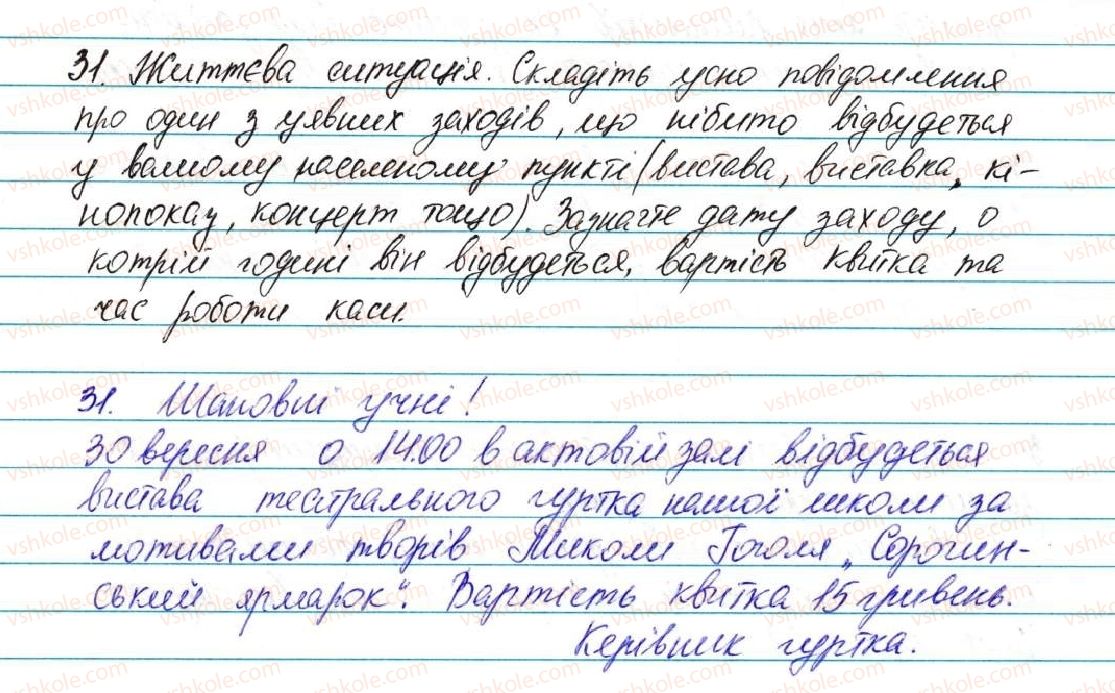 31. Життєва ситуація. Складіть усно повідомлення
про один з уявних заходів, що нібито відбудеться
у вашому населеному пункті (вистава, виставка, кі-
нопоказ, концерт тощо). Зазначте дату заходу, о
котрій годині він відбудеться, вартість квитка та
час роботи каси.
31. Шановні учні!
30 вересня о 14.00 в актовій залі відбудеться
вистава театрального гуртка нашої школи за
мотивами творів Миколи Гоголя „Сорочин-
ський ярмарок". Вартість квитка 15 гривень.
Керівник гуртка.